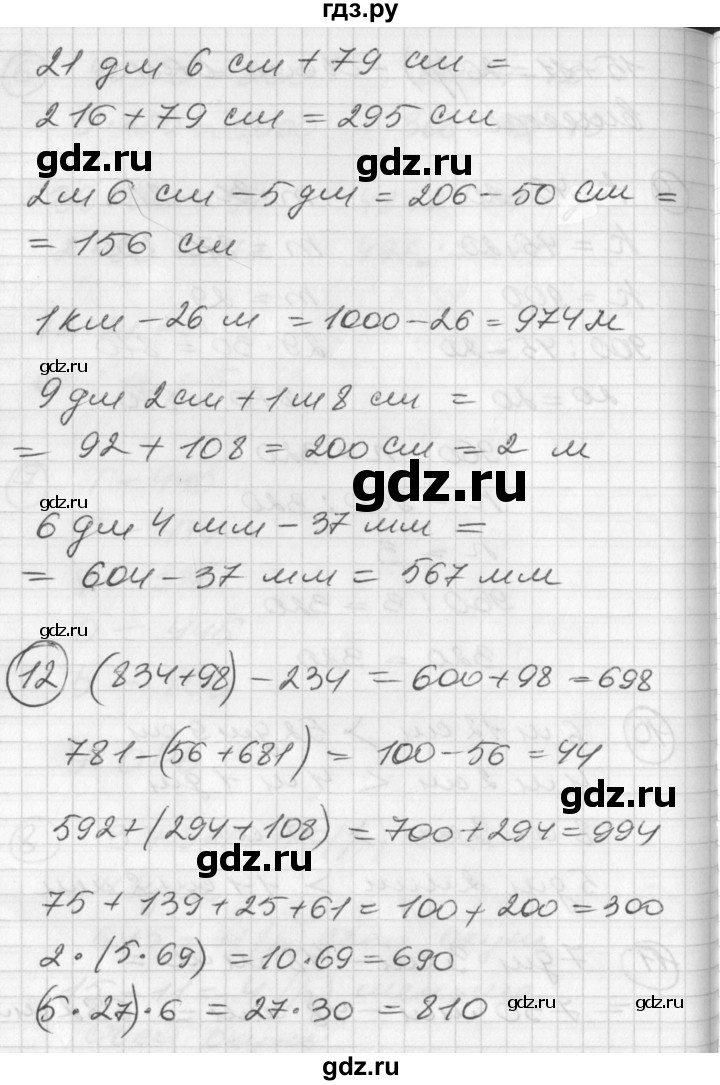 гдз.ру
21 дм 6 см + 79 см =
216 + 79 см = 295 см
gdz.ru gdz.ru
2м 6 см - 5 дм = 206 - 50 см =
= 156 см
1 км - 26 м = 1000 - 26 = 974 м
gdz.ru
9 дм 2 см + 1 м 8 см =
= 92 + 108 = 200 см = 2 м
gdz.ru
gdz.ru
6 дм 4 мм - 37 мм =
= 604 - 37 мм = 567 мм
gdz.ru
12 (834+98) - 234 = 600 + 98 = 698
781 - (56 + 681) = 100 - 56 = 44
gdz.ru
592 + (294 + 108) = 700 + 294 = 994
gdz.ru
75 + 139 + 25 + 61 = 100 + 200 = 300
2 · (5 · 69) = 10 · 69 = 690
(5 · 27) · 6 = 27 · 30 = 810
gdz.ru gdz.ru
gdz.ru